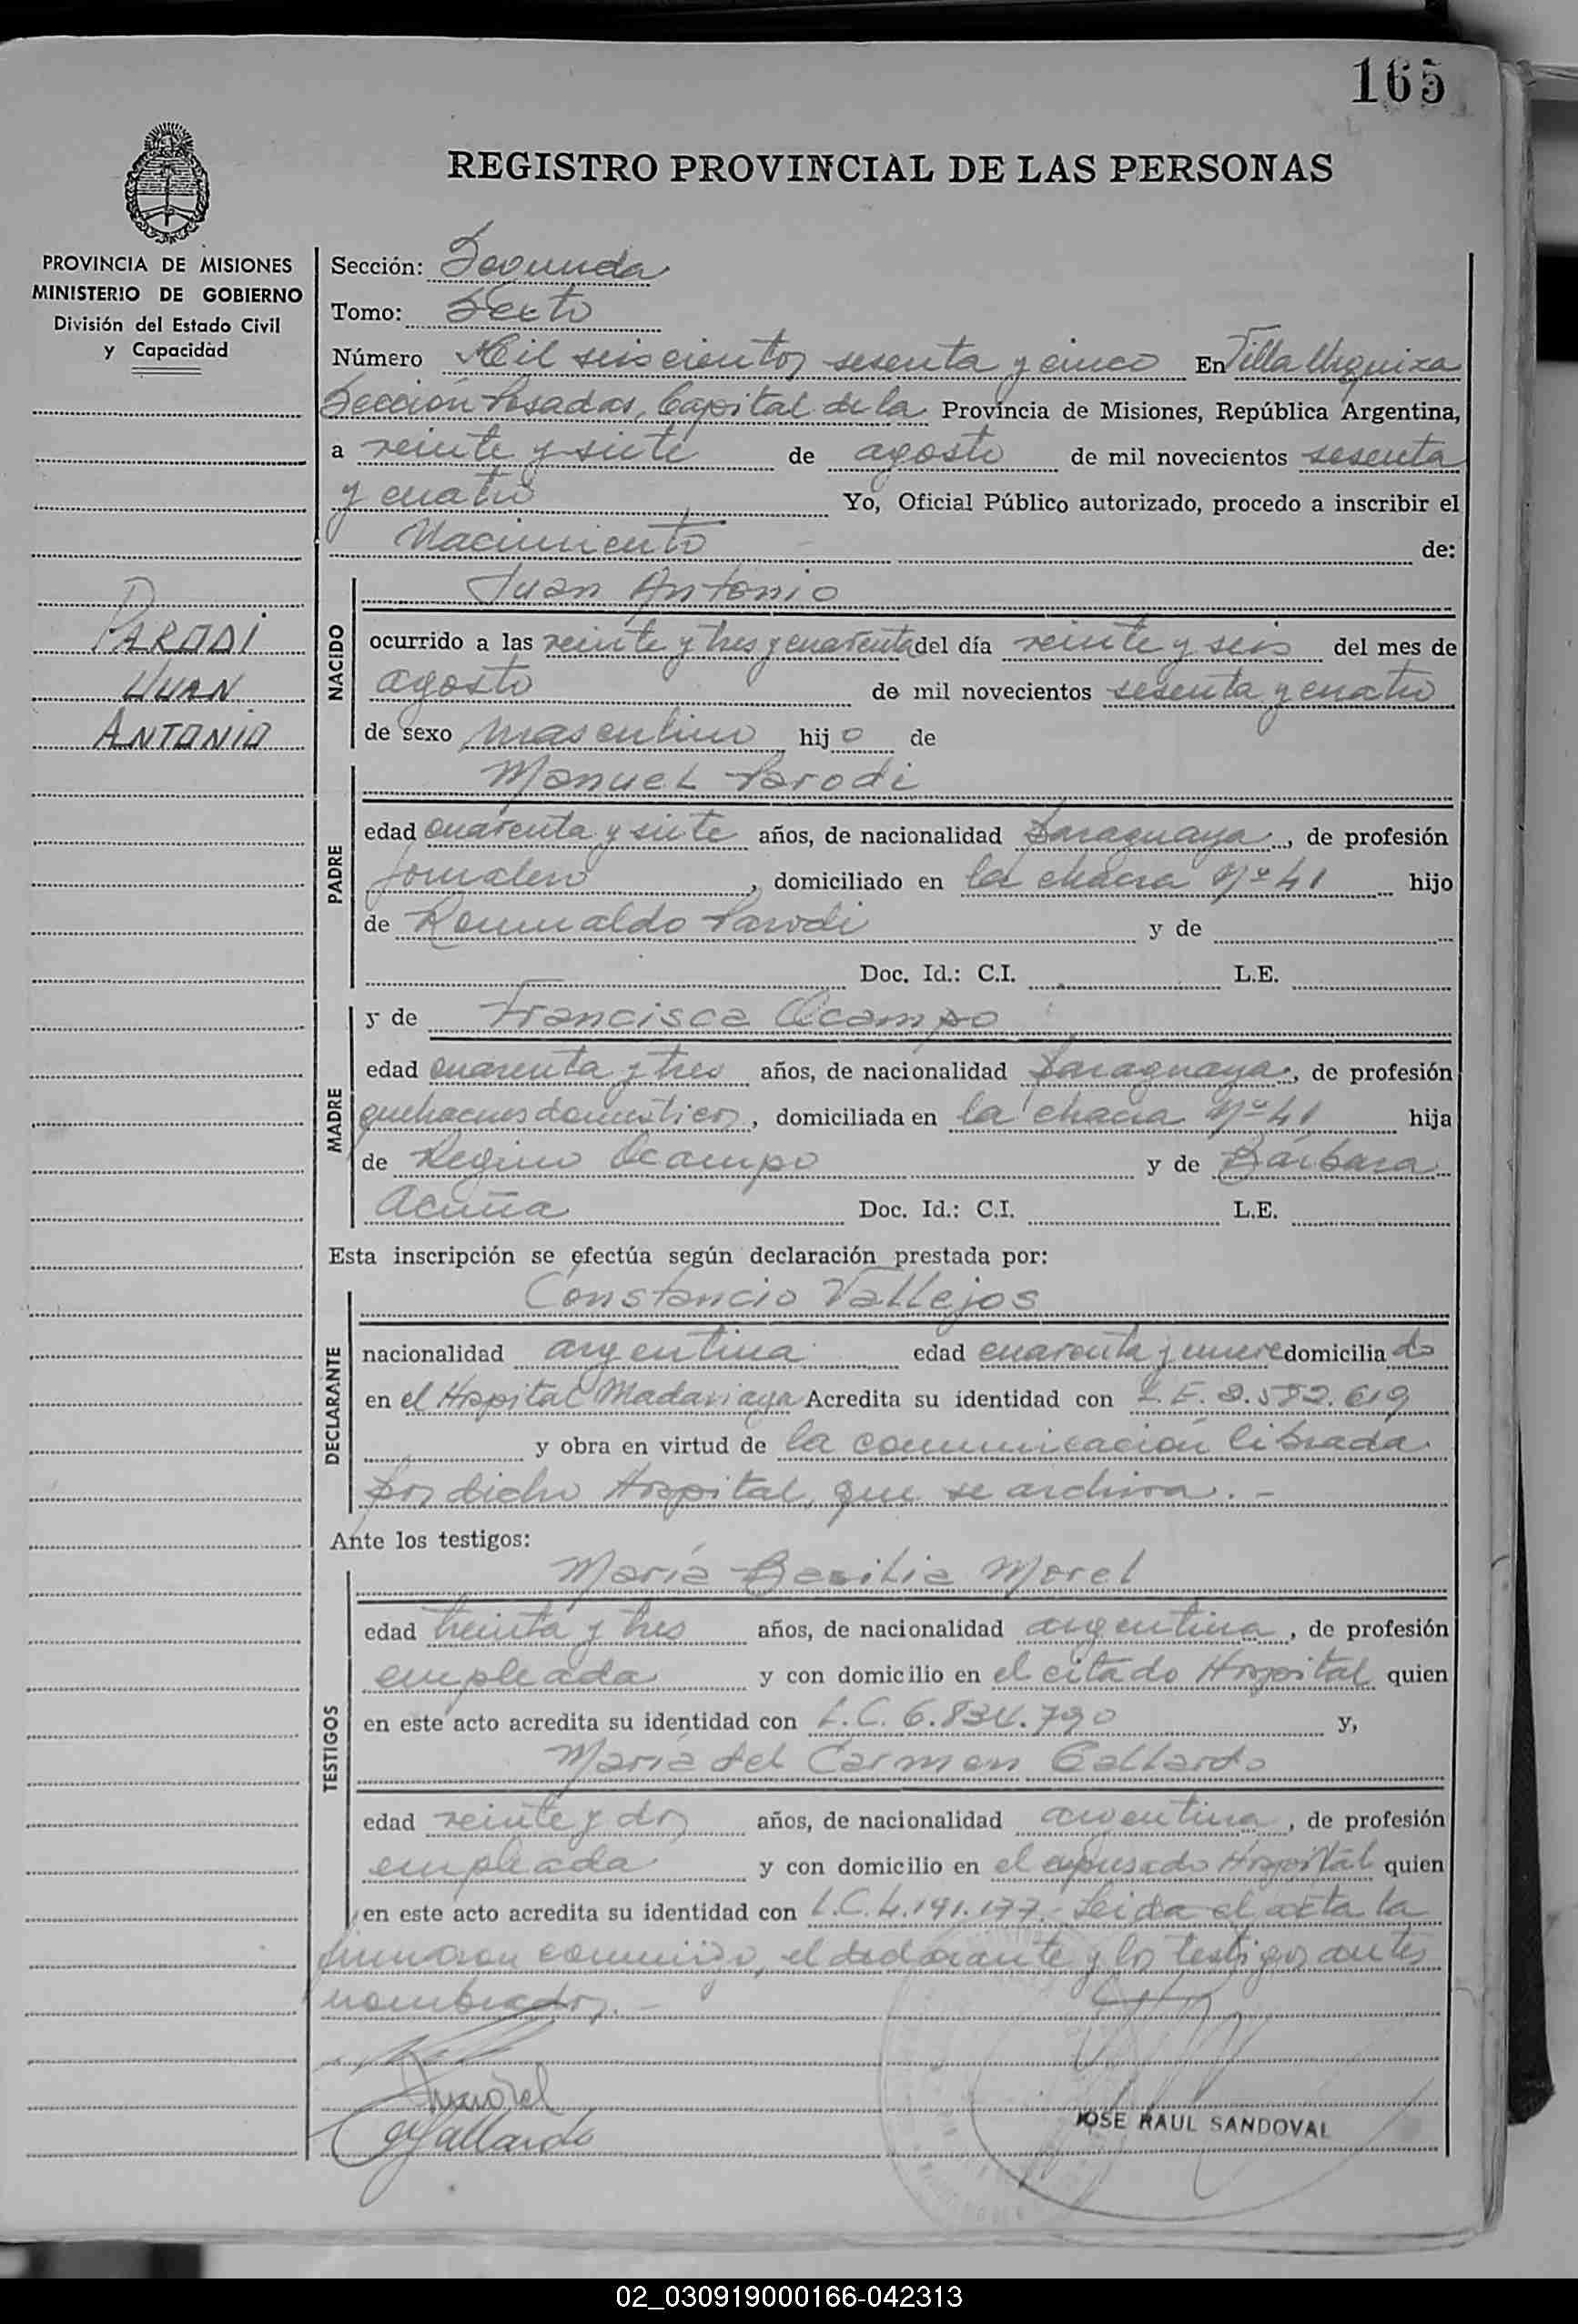 165
REGISTRO PROVINCIAL DE LAS PERSONAS
PROVINCIA DE MISIONES
MINISTERIO DE GOBIERNO
División del Estado Civil
y Capacidad
PARODI
JUAN
ANTONIO
Sección: Segunda
Tomo: Sexto
Número Mil seiscientos sesenta y cinco En Villa Urquiza
Sección Posadas, Capital de la Provincia de Misiones, República Argentina,
a veinte y siete de agosto de mil novecientos sesenta
y cuatro Yo, Oficial Público autorizado, procedo a inscribir el
Nacimiento de:
NACIDO
Juan Antonio
ocurrido a las veinte y tres y cuarenta del día veinte y seis del mes de
agosto de mil novecientos sesenta y cuatro
de sexo masculino hijo de
PADRE
Manuel Parodi
edad cuarenta y siete años, de nacionalidad Paraguaya, de profesión
Jornalero, domiciliado en la chacra Nº 41 hijo
de Romualdo Parodi y de
Doc. Id.: C.I. L.E.
MADRE
y de Francisca Ocampo
edad cuarenta y tres años, de nacionalidad Paraguaya, de profesión
quehaceres domésticos, domiciliada en la chacra Nº 41 hija
de Regino Ocampo y de Bárbara
Acuña Doc. Id.: C.I. L.E.
Esta inscripción se efectúa según declaración prestada por:
DECLARANTE
Constancio Vallejos
nacionalidad argentina edad cuarenta y nueve domiciliado
en el Hospital Madariaga Acredita su identidad con L.E. 2.582.619
y obra en virtud de la comunicación librada
por dicho Hospital, que se archiva. -
Ante los testigos:
TESTIGOS
María Basilia Morel
edad treinta y tres años, de nacionalidad argentina, de profesión
empleada y con domicilio en el citado Hospital quien
en este acto acredita su identidad con L.C. 6.834.790 y,
María del Carmen Gallardo
edad veinte y dos años, de nacionalidad argentina, de profesión
empleada y con domicilio en el expresado Hospital quien
en este acto acredita su identidad con L.C. 4.191.177.- Leida el acta la
firmaron conmigo, el declarante y los testigos antes
nombrados. -
Morel
Gallardo
JOSE RAUL SANDOVAL
02_030919000166-042313